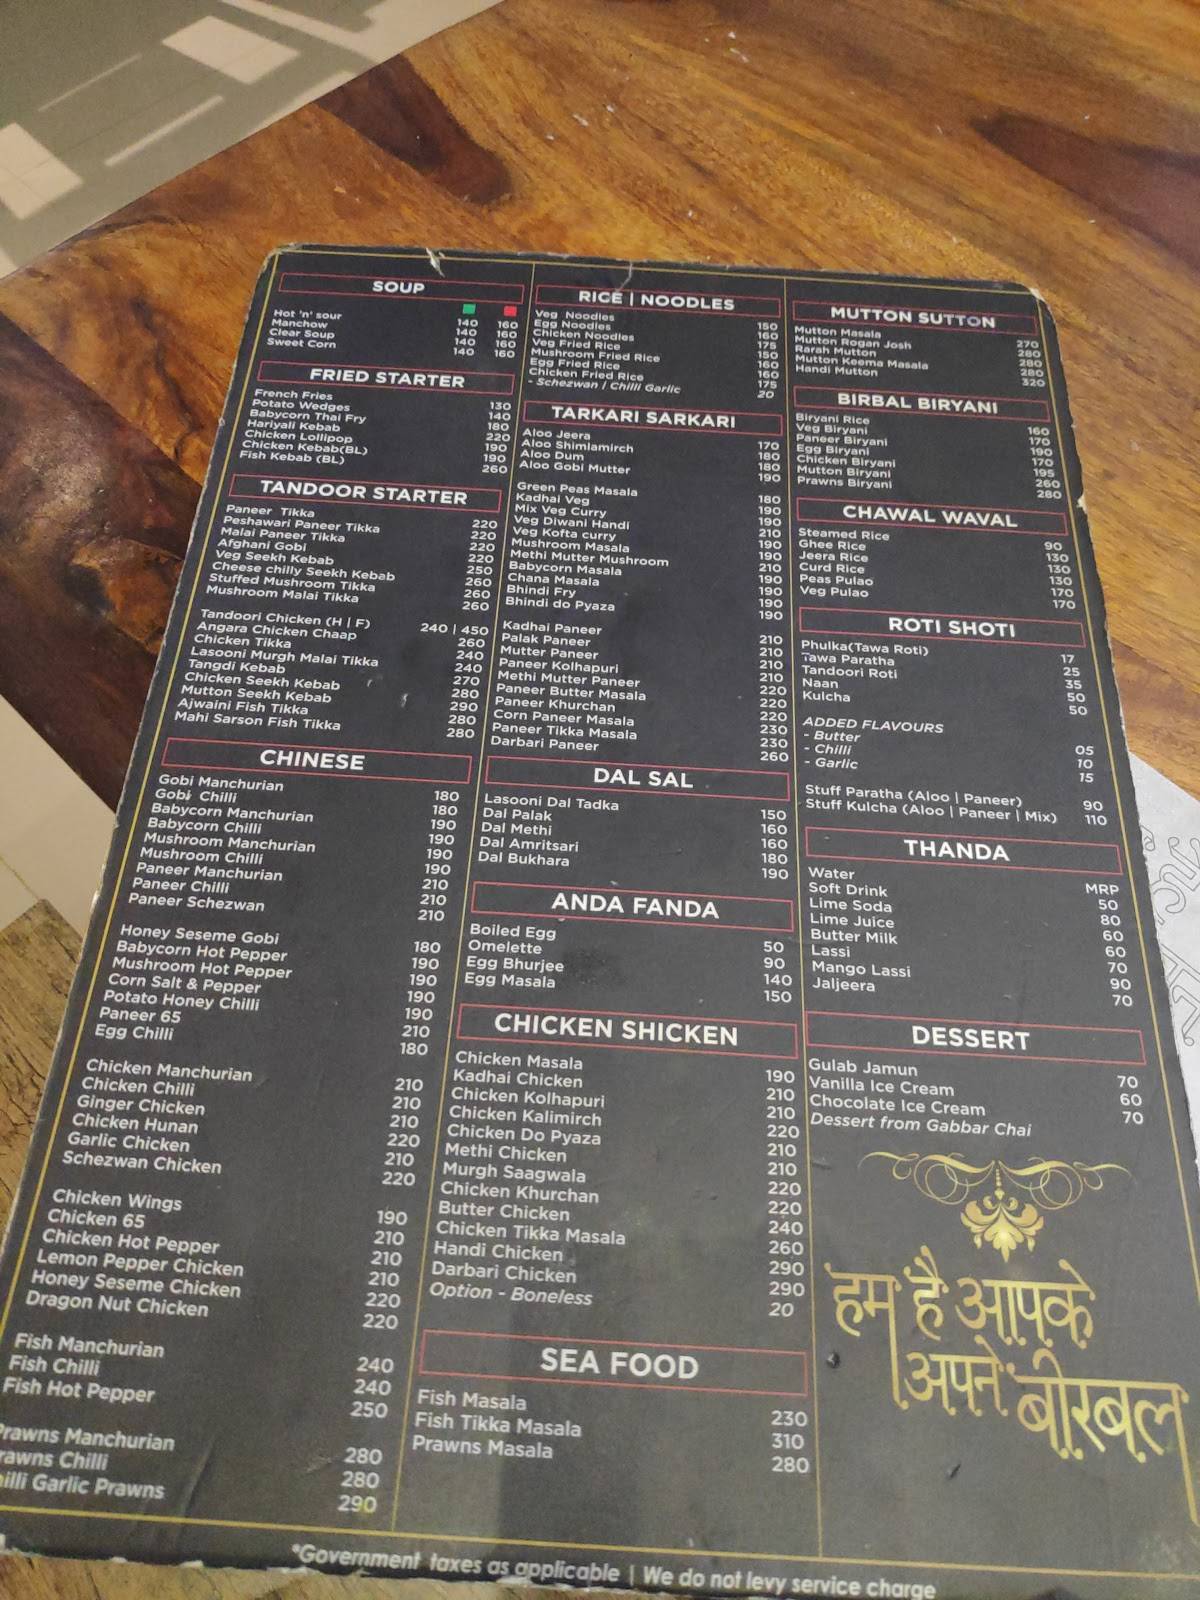 SOUP
Hot 'n' sour 140 160
Manchow 140 160
Clear Soup 140 160
Sweet Corn 140 160
FRIED STARTER
French Fries 130
Potato Wedges 140
Babycorn Thai Fry 180
Hariyali Kebab 220
Chicken Lollipop 190
Chicken Kebab(BL) 190
Fish Kebab (BL) 260
TANDOOR STARTER
Paneer Tikka 220
Peshawari Paneer Tikka 220
Malai Paneer Tikka 220
Afghani Gobi 220
Veg Seekh Kebab 250
Cheese chilly Seekh Kebab 260
Stuffed Mushroom Tikka 260
Mushroom Malai Tikka 260
Tandoori Chicken (H | F) 240 | 450
Angara Chicken Chaap 260
Chicken Tikka 240
Lasooni Murgh Malai Tikka 240
Tangdi Kebab 270
Chicken Seekh Kebab 280
Mutton Seekh Kebab 290
Ajwaini Fish Tikka 280
Mahi Sarson Fish Tikka 280
CHINESE
Gobi Manchurian 180
Gobi Chilli 180
Babycorn Manchurian 190
Babycorn Chilli 190
Mushroom Manchurian 190
Mushroom Chilli 190
Paneer Manchurian 210
Paneer Chilli 210
Paneer Schezwan 210
Honey Seseme Gobi 180
Babycorn Hot Pepper 190
Mushroom Hot Pepper 190
Corn Salt & Pepper 190
Potato Honey Chilli 190
Paneer 65 210
Egg Chilli 180
Chicken Manchurian 210
Chicken Chilli 210
Ginger Chicken 210
Chicken Hunan 220
Garlic Chicken 210
Schezwan Chicken 220
Chicken Wings 190
Chicken 65 210
Chicken Hot Pepper 210
Lemon Pepper Chicken 210
Honey Seseme Chicken 220
Dragon Nut Chicken 220
Fish Manchurian 240
Fish Chilli 240
Fish Hot Pepper 250
Prawns Manchurian 280
rawns Chilli 280
illi Garlic Prawns 290
RICE | NOODLES
Veg Noodles 150
Egg Noodles 160
Chicken Noodles 175
Veg Fried Rice 150
Mushroom Fried Rice 160
Egg Fried Rice 160
Chicken Fried Rice 175
- Schezwan / Chilli Garlic 20
TARKARI SARKARI
Aloo Jeera 170
Aloo Shimlamirch 180
Aloo Dum 180
Aloo Gobi Mutter 190
Green Peas Masala 180
Kadhai Veg 190
Mix Veg Curry 190
Veg Diwani Handi 210
Veg Kofta curry 190
Mushroom Masala 190
Methi Mutter Mushroom 210
Babycorn Masala 190
Chana Masala 190
Bhindi Fry 190
Bhindi do Pyaza 190
Kadhai Paneer 210
Palak Paneer 210
Mutter Paneer 210
Paneer Kolhapuri 210
Methi Mutter Paneer 220
Paneer Butter Masala 220
Paneer Khurchan 220
Corn Paneer Masala 230
Paneer Tikka Masala 230
Darbari Paneer 260
DAL SAL
Lasooni Dal Tadka 150
Dal Palak 160
Dal Methi 160
Dal Amritsari 180
Dal Bukhara 190
ANDA FANDA
Boiled Egg 50
Omelette 90
Egg Bhurjee 140
Egg Masala 150
CHICKEN SHICKEN
Chicken Masala 190
Kadhai Chicken 210
Chicken Kolhapuri 210
Chicken Kalimirch 220
Chicken Do Pyaza 210
Methi Chicken 210
Murgh Saagwala 220
Chicken Khurchan 220
Butter Chicken 240
Chicken Tikka Masala 260
Handi Chicken 290
Darbari Chicken 290
Option - Boneless 20
SEA FOOD
Fish Masala 230
Fish Tikka Masala 310
Prawns Masala 280
MUTTON SUTTON
Mutton Masala 270
Mutton Rogan Josh 280
Rarah Mutton 280
Mutton Keema Masala 280
Handi Mutton 320
BIRBAL BIRYANI
Biryani Rice 160
Veg Biryani 170
Paneer Biryani 190
Egg Biryani 170
Chicken Biryani 195
Mutton Biryani 260
Prawns Biryani 280
CHAWAL WAVAL
Steamed Rice 90
Ghee Rice 130
Jeera Rice 130
Curd Rice 130
Peas Pulao 170
Veg Pulao 170
ROTI SHOTI
Phulka(Tawa Roti) 17
Tawa Paratha 25
Tandoori Roti 35
Naan 50
Kulcha 50
ADDED FLAVOURS
- Butter 05
- Chilli 10
- Garlic 15
Stuff Paratha (Aloo | Paneer) 90
Stuff Kulcha (Aloo | Paneer | Mix) 110
THANDA
Water MRP
Soft Drink 50
Lime Soda 80
Lime Juice 60
Butter Milk 60
Lassi 70
Mango Lassi 90
Jaljeera 70
DESSERT
Gulab Jamun 70
Vanilla Ice Cream 60
Chocolate Ice Cream 70
Dessert from Gabbar Chai
हम है आपके
अपने बीरबल
*Government taxes as applicable | We do not levy service charge